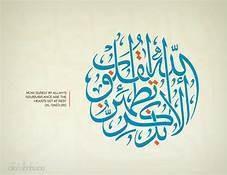 NOW SURELY BY ALLAH'S
REMEMBRANCE ARE THE
HEARTS SET AT REST
ألا بذكر الله تطمئن القلوب